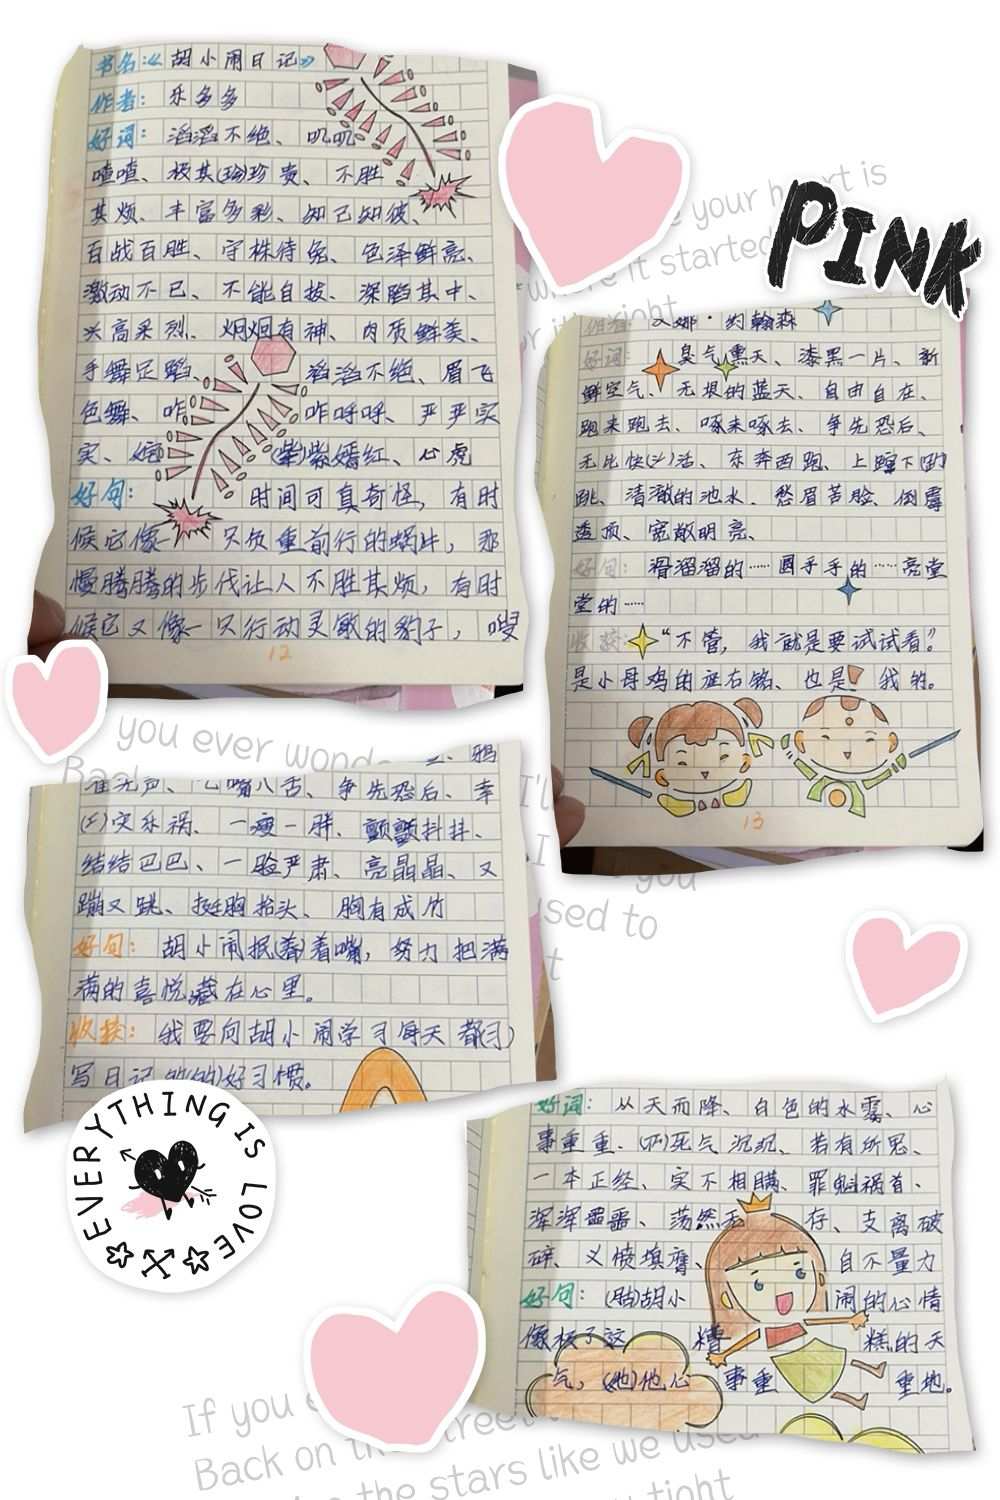 书名:《胡小闹日记》
作者: 乐多多
好词: 滔滔不绝、叽叽
喳喳、极其(珍)珍贵、不胜
其烦、丰富多彩、知己知彼、
百战百胜、守株待兔、色泽鲜亮、
激动不已、不能自拔、深陷其中、
兴高采烈、炯炯有神、肉质鲜美、
手舞足蹈、滔滔不绝、眉飞
色舞、咋咋呼呼、严严实
实、姹(紫)紫嫣红、心虚
好句: 时间可真奇怪, 有时
候它像一只负重前行的蜗牛, 那
慢腾腾的步伐让人不胜其烦, 有时
候它又像一只行动灵敏的豹子, 嗖
12
PINK
your heart is
where it started
right
作者: 娜·约翰森
好词: 臭气熏天、漆黑一片、新
鲜空气、无垠的蓝天、自由自在、
跑来跑去、啄来啄去、争先恐后、
无比快(氵)活、东奔西跑、上蹿下(跳)
跳、清澈的池水、愁眉苦脸、倒霉
透顶、宽敞明亮、
好句: 滑溜溜的……圆乎乎的……亮堂
堂的……
收获: “不管, 我就是要试试看?
是小母鸡的座右铭、也是! 我的。
13
you ever wonde
Back
I'll
I
you
used to
t
鸦
雀无声、七嘴八舌、争先恐后、幸
(工)灾乐祸、一瘦一胖、颤颤抖抖、
结结巴巴、一脸严肃、亮晶晶、又
蹦又跳、挺胸抬头、胸有成竹
好句: 胡小闹抿(着)着嘴, 努力把满
满的喜悦藏在心里。
收获: 我要向胡小闹学习每天都(习)
写日记的(的)好习惯。
EVERYTHING IS LOVE
好词: 从天而降、白色的水雾、心
事重重、死气沉沉、若有所思、
一本正经、实不相瞒、罪魁祸首、
浑浑噩噩、荡然无存、支离破
碎、义愤填膺、自不量力
好句: (胡)胡小闹的心情
像极了这糟糕的天
气, (他)他心事重重地。
If you e
Back on the street
the stars like we used
tight